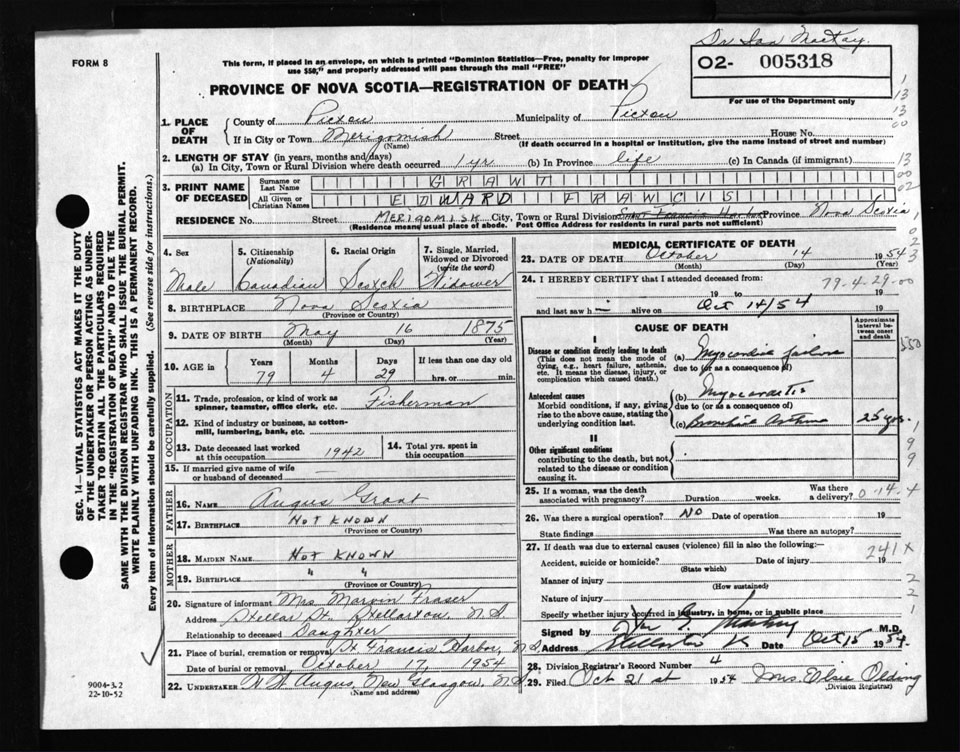 Dr Ian MacKay.
FORM 8
This form, if placed in an envelope, on which is printed "Dominion Statistics—Free, penalty for improper
use $50," and properly addressed will pass through the mail "FREE"
O2- 005318
For use of the Department only
PROVINCE OF NOVA SCOTIA—REGISTRATION OF DEATH
1. PLACE OF DEATH County of Pictou Municipality of Pictou
If in City or Town Merigomish Street House No.
(Name) (If death occurred in a hospital or institution, give the name instead of street and number)
2. LENGTH OF STAY (in years, months and days)
(a) In City, Town or Rural Division where death occurred 1 yr (b) In Province life (c) In Canada (if immigrant)
3. PRINT NAME OF DECEASED Surname or Last Name GRANT
All Given or Christian Names EDWARD FRANCIS
RESIDENCE No. Street MERIGOMISH City, Town or Rural Division Saint Francis Harbor Prov. Nova Scotia
(Residence means usual place of abode. Post Office Address for residents in rural parts not sufficient)
4. Sex Male
5. Citizenship (Nationality) Canadian
6. Racial Origin Scotch
7. Single, Married, Widowed or Divorced (write the word) Widower
8. BIRTHPLACE Nova Scotia
(Province or Country)
9. DATE OF BIRTH May 16 1875
(Month) (Day) (Year)
10. AGE in Years 79 Months 4 Days 29 If less than one day old
hrs. or min.
OCCUPATION
11. Trade, profession, or kind of work as spinner, teamster, office clerk, etc. Fisherman
12. Kind of industry or business, as cotton-mill, lumbering, bank, etc.
13. Date deceased last worked at this occupation 1942
14. Total yrs. spent in this occupation
15. If married give name of wife or husband of deceased
FATHER
16. Name Angus Grant
17. Birthplace NOT KNOWN
(Province or Country)
MOTHER
18. Maiden Name NOT KNOWN
19. Birthplace " "
(Province or Country)
20. Signature of informant Mrs Marvin Fraser
Address Stellar St. Stellarton, N.S.
Relationship to deceased Daughter
21. Place of burial, cremation or removal St Francis Harbor, N.S.
Date of burial or removal October 17, 1954
22. UNDERTAKER Angus, New Glasgow, N.S.
(Name and address)
MEDICAL CERTIFICATE OF DEATH
23. DATE OF DEATH October 14 1954
(Month) (Day) (Year)
24. I HEREBY CERTIFY that I attended deceased from: 79-4-29-00
19 to 19
and last saw h alive on Oct 14/54 19
CAUSE OF DEATH
Approximate interval between onset and death
I
Disease or condition directly leading to death (a) Myocardial failure
(This does not mean the mode of dying, e.g., heart failure, asthenia, etc. It means the disease, injury, or complication which caused death.)
due to (or as a consequence of)
Antecedent causes (b)
Morbid conditions, if any, giving rise to the above cause, stating the underlying condition last.
due to (or as a consequence of)
(c) Bronchial Asthma 25 yrs.
II
Other significant conditions
contributing to the death, but not related to the disease or condition causing it.
25. If a woman, was the death associated with pregnancy? Duration weeks. Was there a delivery? 0-14-4
26. Was there a surgical operation? NO Date of operation 19
State findings Was there an autopsy?
27. If death was due to external causes (violence) fill in also the following:— 241X
Accident, suicide or homicide? Date of injury 19
(State which)
Manner of injury
(How sustained)
Nature of injury
Specify whether injury occurred in industry, in home, or in public place
Signed by M.D.
Address Stellarton Date Oct 15 1954
28. Division Registrar's Record Number 4
29. Filed Oct 21st 1954 Mrs. Elsie Olding
(Division Registrar)
SEC. 14—VITAL STATISTICS ACT MAKES IT THE DUTY
OF THE UNDERTAKER OR PERSON ACTING AS UNDER-
TAKER TO OBTAIN ALL THE PARTICULARS REQUIRED
IN THE "REGISTRATION OF DEATH" AND TO FILE THE
SAME WITH THE DIVISION REGISTRAR WHO SHALL ISSUE THE BURIAL PERMIT.
WRITE PLAINLY WITH UNFADING INK. THIS IS A PERMANENT RECORD.
Every item of information should be carefully supplied. (See reverse side for instructions.)
9004-3.2
22-10-52